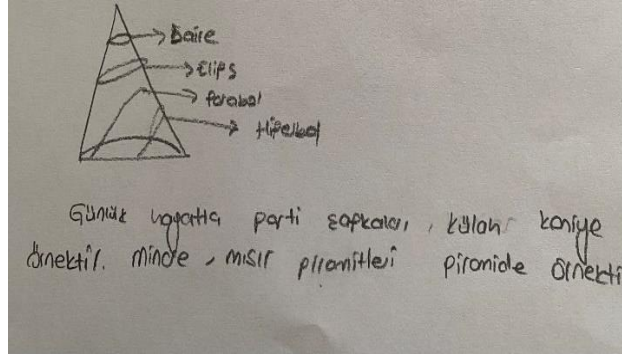 Daire
Elips
Parabol
Hiperbol
Günlük hayatta parti şapkaları, külah koniye
örnektir. minde, mısır piramitleri piramide örnekti